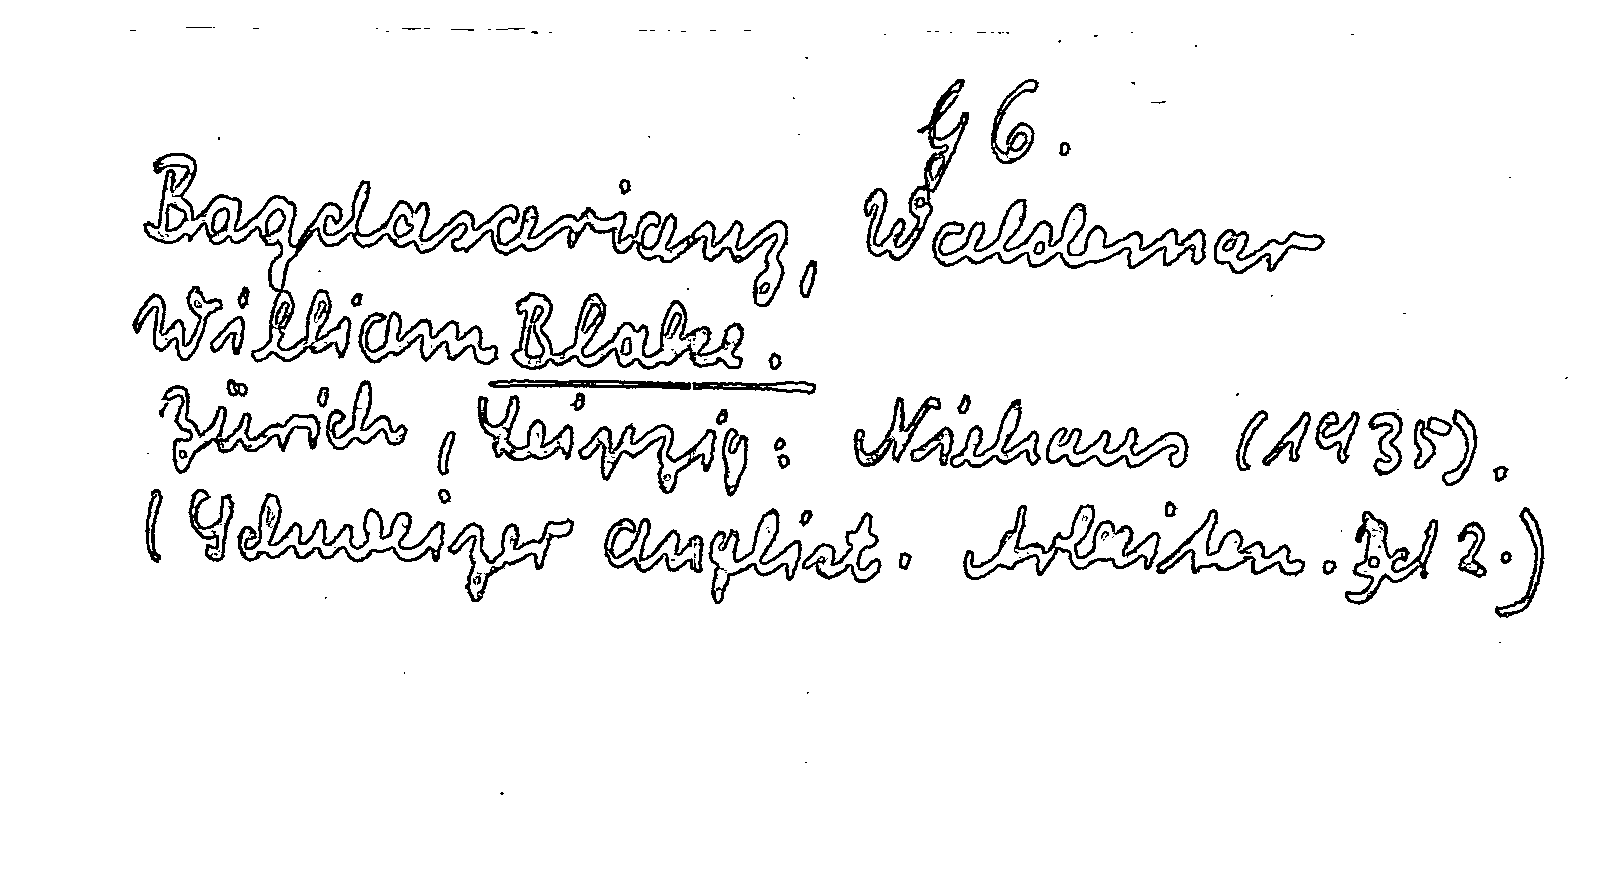 G 6.
Bagdasarianz, Waldemar
William Blake.
Zürich, Leipzig: Niehaus (1935).
(Schweizer anglist. Arbeiten. Bd 2.)